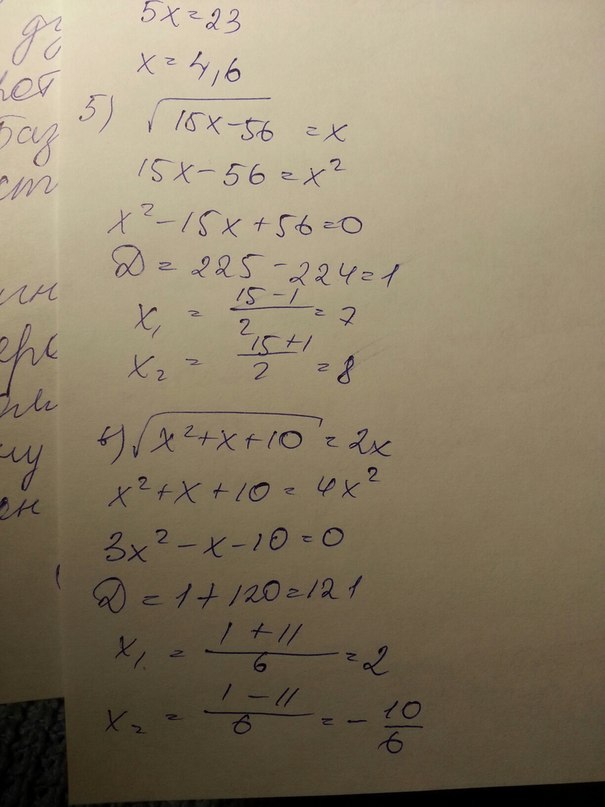 5x=23
x=4,6
5) √15x-56 = x
15x-56=x²
x²-15x+56=0
D = 225-224=1
x₁ = 15-1/2 = 7
x₂ = 15+1/2 = 8
6) √x²+x+10 = 2x
x²+x+10=4x²
3x²-x-10=0
D=1+120=121
x₁ = 1+11/6 = 2
x₂ = 1-11/6 = -10/6